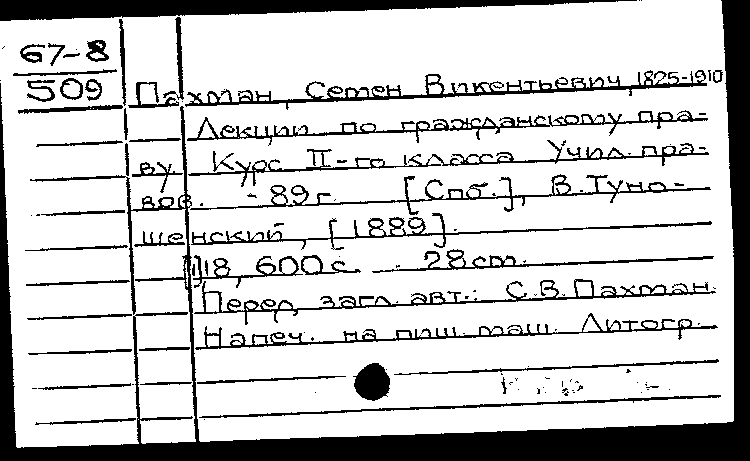 67-8
509
Пахман, Семен Викентьевич, 1825-1910
Лекции по гражданскому пра-
ву. Курс II-го класса Учил. пра-
вов. - 89 г. [Спб.], В. Туно-
шенский, [1889].
18, 600 с. 28 cm.
Перед загл. авт.: С.В. Пахман.
Напеч. на пиш. маш. Литогр.